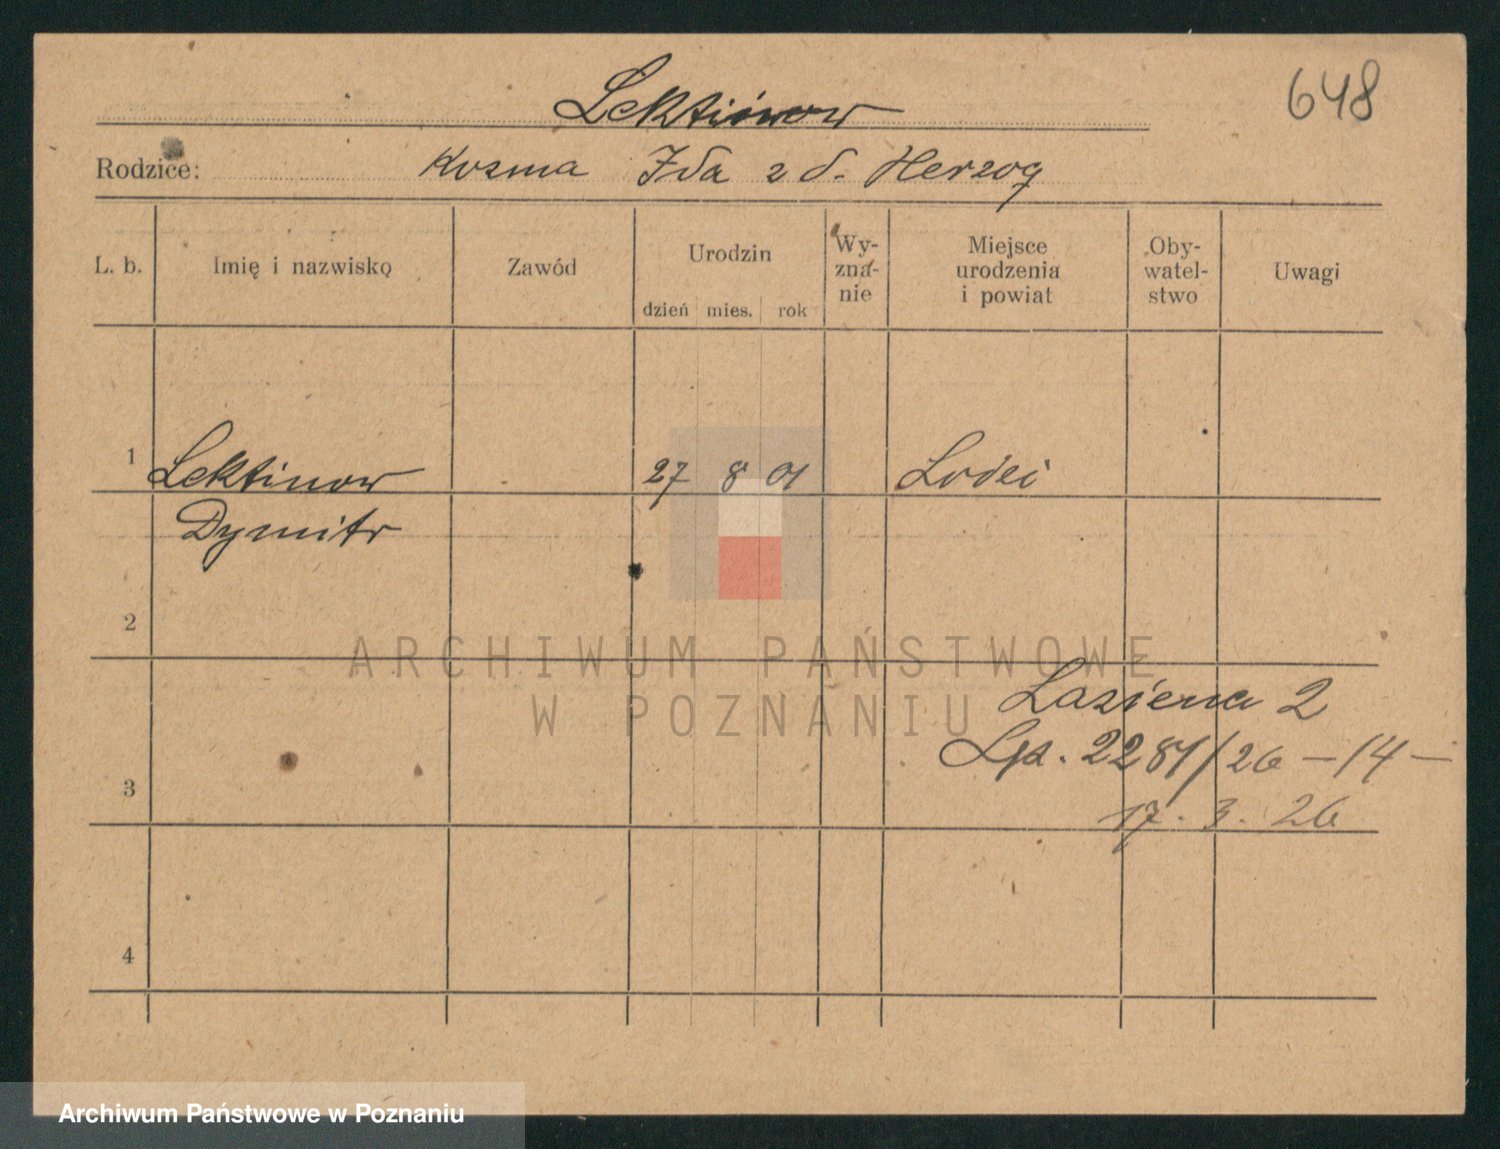 Lektinow
648
Rodzice: Kosma Ida z d. Herzog
L. b.
Imię i nazwisko
Zawód
Urodzin
dzień mies. rok
Wy-
zna-
nie
Miejsce
urodzenia
i powiat
Oby-
watel-
stwo
Uwagi
1 Lektinow 27 8 01
Dymitr
2
ARCHIWUM PAŃSTWOWE
W POZNANIU
Lazienna 2
2281/26 - 14 -
3
17. 3. 26
4
Archiwum Państwowe w Poznaniu